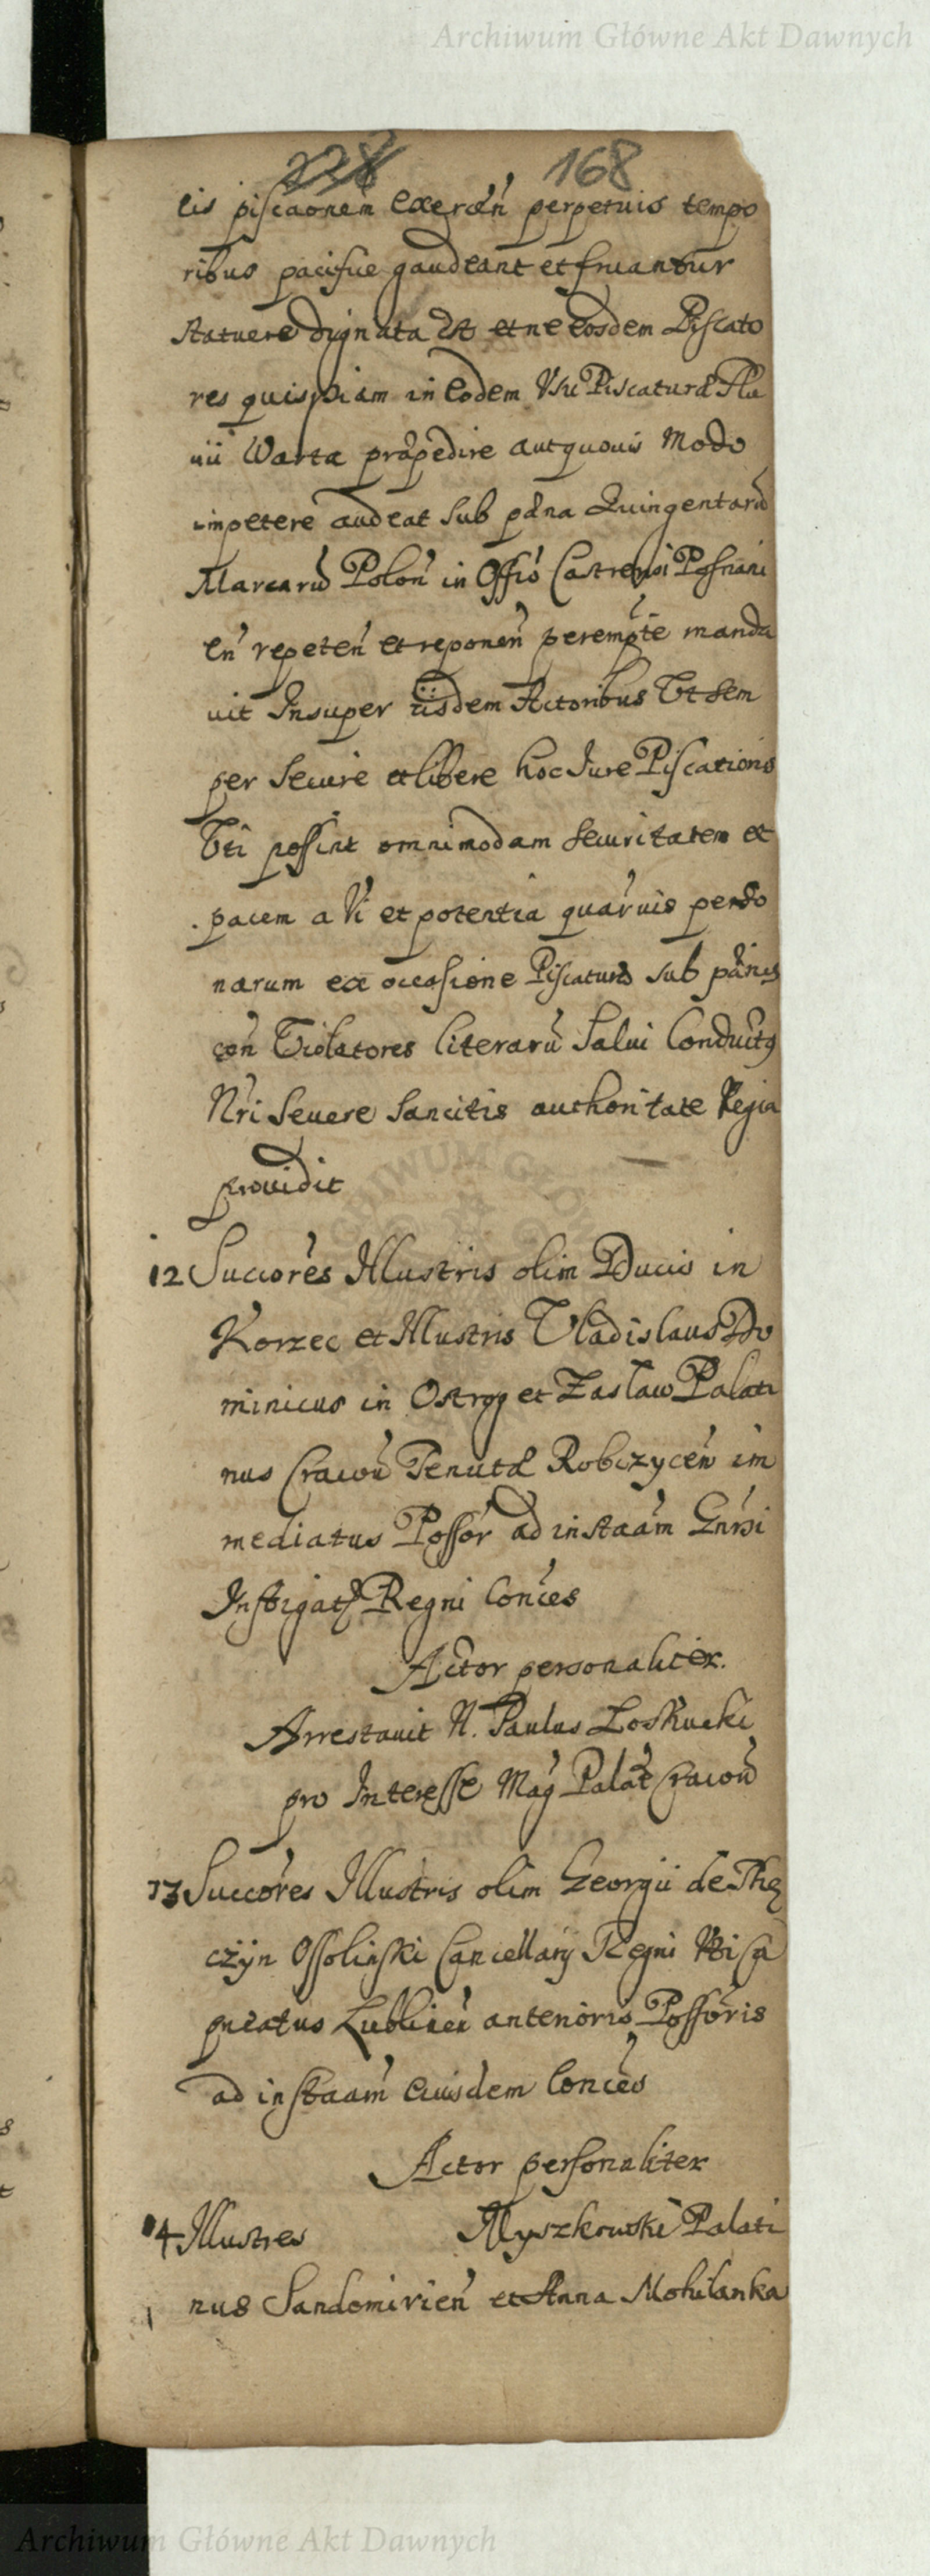 Archiwum Główne Akt Dawnych
228 168
cis piscaonem exercen perpetuis tempo
ribus pacifice gaudeant et fruantur
statuere dignata est et ne eosdem Piscato
res quispiam in eodem Usu Piscaturæ Flu
uii Warta præpedire aut quouis Modo
impetere audeat sub pæna Quingentarū
Marcarū Polon in Offio Castrensi Posnani
en repeten et reponen perempte manda
uit Insuper iisdem Actoribus Vt sem
per secure et libere hoc Jure Piscationis
Vti possint omnimodam securitatem et
pacem a Vi et potentia quaruis perso
narum ex occasione Piscaturæ sub pænis
con Violatores literarū Salui Conductus
Nri Seuere Sancitis authoritate Regia
prouidit
12 Succores Illustris olim Ducis in
Korzec et Illustris Vladislaus Do
minicus in Ostrog et Zaslaw Palati
nus Cracou Tenutæ Robczycen im
mediatus Possor ad instaam Gnrsi
Instigats Regni Conces
Actor personaliter.
Arrestauit N. Paulus Loskucki
pro Interesse Mag Palat Cracou
13 Succores Illustris olim Georgii de The
czyn Ossolinski Cancellarij Regni
pneatus Lublinen anterioris Possoris
ad instaam eiusdem Conces
Actor personaliter
14 Illustres Myszkowski Palati
nus Sandomirien et Anna Mohilanka
Archiwum Główne Akt Dawnych